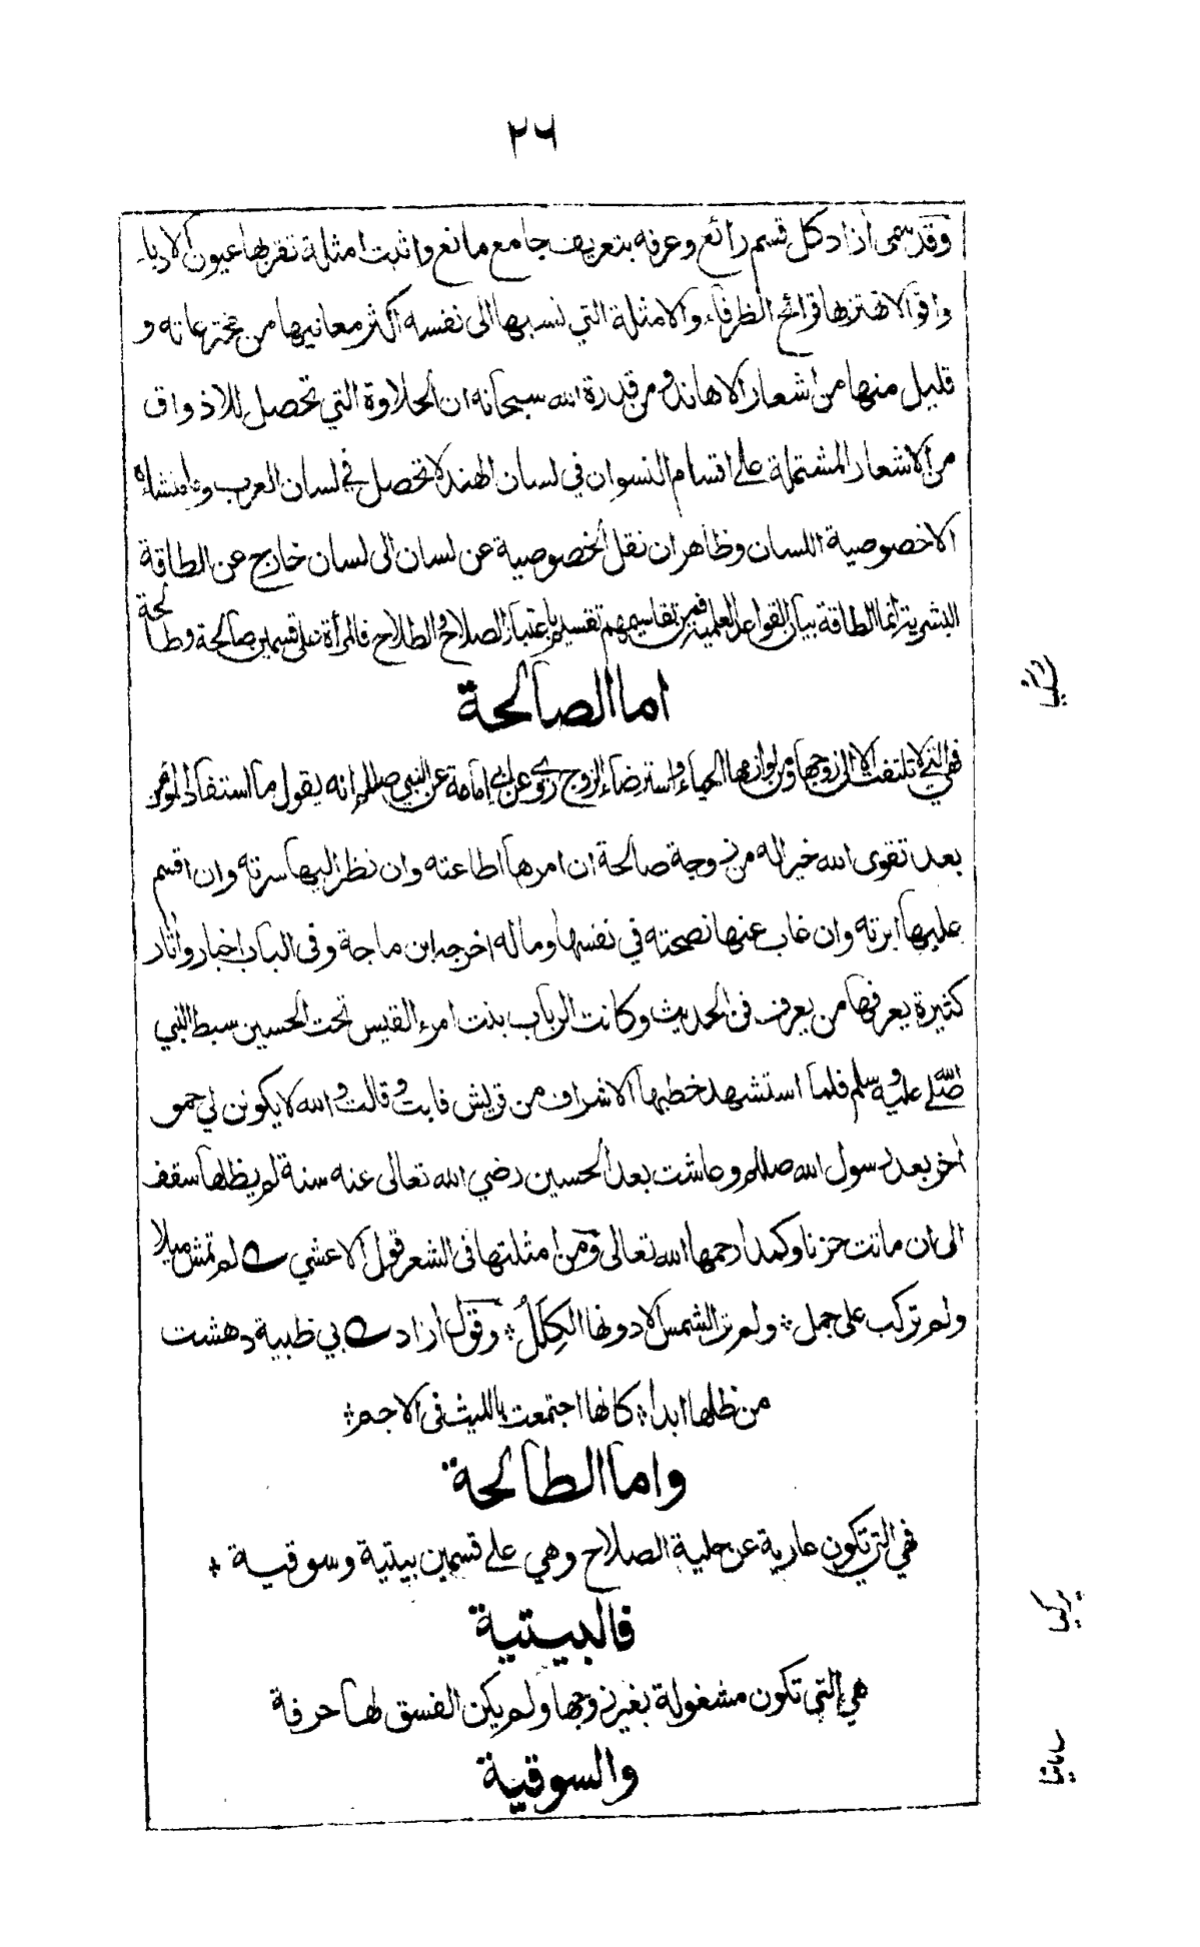 ٢٦
وقد سمى ازاد كل قسم رائع وعرفه بتعريف جامع مانع واثبت امثلة تقربها عيون الادباء
واقوالا تهتزبها قرائح الظرفاء والامثلة التي نسبها الى نفسه اكثر معانيها من مخترعاته و
قليل منها من اشعار الاهاند ومن قدرة الله سبحانه ان الحلاوة التي تحصل للاذواق
من الاشعار المشتملة على اقسام النسوان في لسان الهند لا تحصل في لسان العرب وما منشاءه
الا خصوصية اللسان وظاهر ان نقل الخصوصية عن لسان الى لسان خارج عن الطاقة
البشرية انما الطاقة بيان القواعد العلمية فمن تقاسيمهم تقسيم باعتبار الصلاح والطلاح فالمرأة على قسمين صالحة وطالحة
اما الصالحة
فهي التي لا تلتفت الا الى زوجها ومن لوازمها الحياء واسترضاء الزوج روى عن ابي امامة عن النبي صللم انه يقول ما استفاد المؤمن
بعد تقوى الله خيرا له من زوجة صالحة ان امرها اطاعته وان نظر اليها سرته وان اقسم
عليها ابرته وان غاب عنها نصحته في نفسها وماله اخرجه ابن ماجة وفى الباب اخبار واثار
كثيرة يعرفها من يعرف فن الحديث وكانت الرباب بنت امرء القيس تحت الحسين سبط النبي
صلى الله عليه وسلم فلما استشهد خطبها الاشراف من قريش فابت وقالت والله لا يكونن لي حمو
اخر بعد رسول الله صللم وعاشت بعد الحسين رضي الله تعالى عنه سنة لم يظلها سقف
الى ان ماتت حزنا وكمدا رحمها الله تعالى ومن امثلتها فى الشعر قول الاعشي لم تمش ميلا
ولم تركب على جمل ؞ ولم تر الشمس الا دونها الكِلَلُ ؞ وقول ازاد بي ظبية دهشت
من ظلها ابدا ؞ كانها اجتمعت بالليث فى الاجم ؞
واما الطالحة
فهي التي تكون عارية عن حلية الصلاح وهي على قسمين بيتية وسوقية
فالبيتية
هي التي تكون مشغولة بغير زوجها ولم يكن الفسق لها حرفة
والسوقية
پركيا